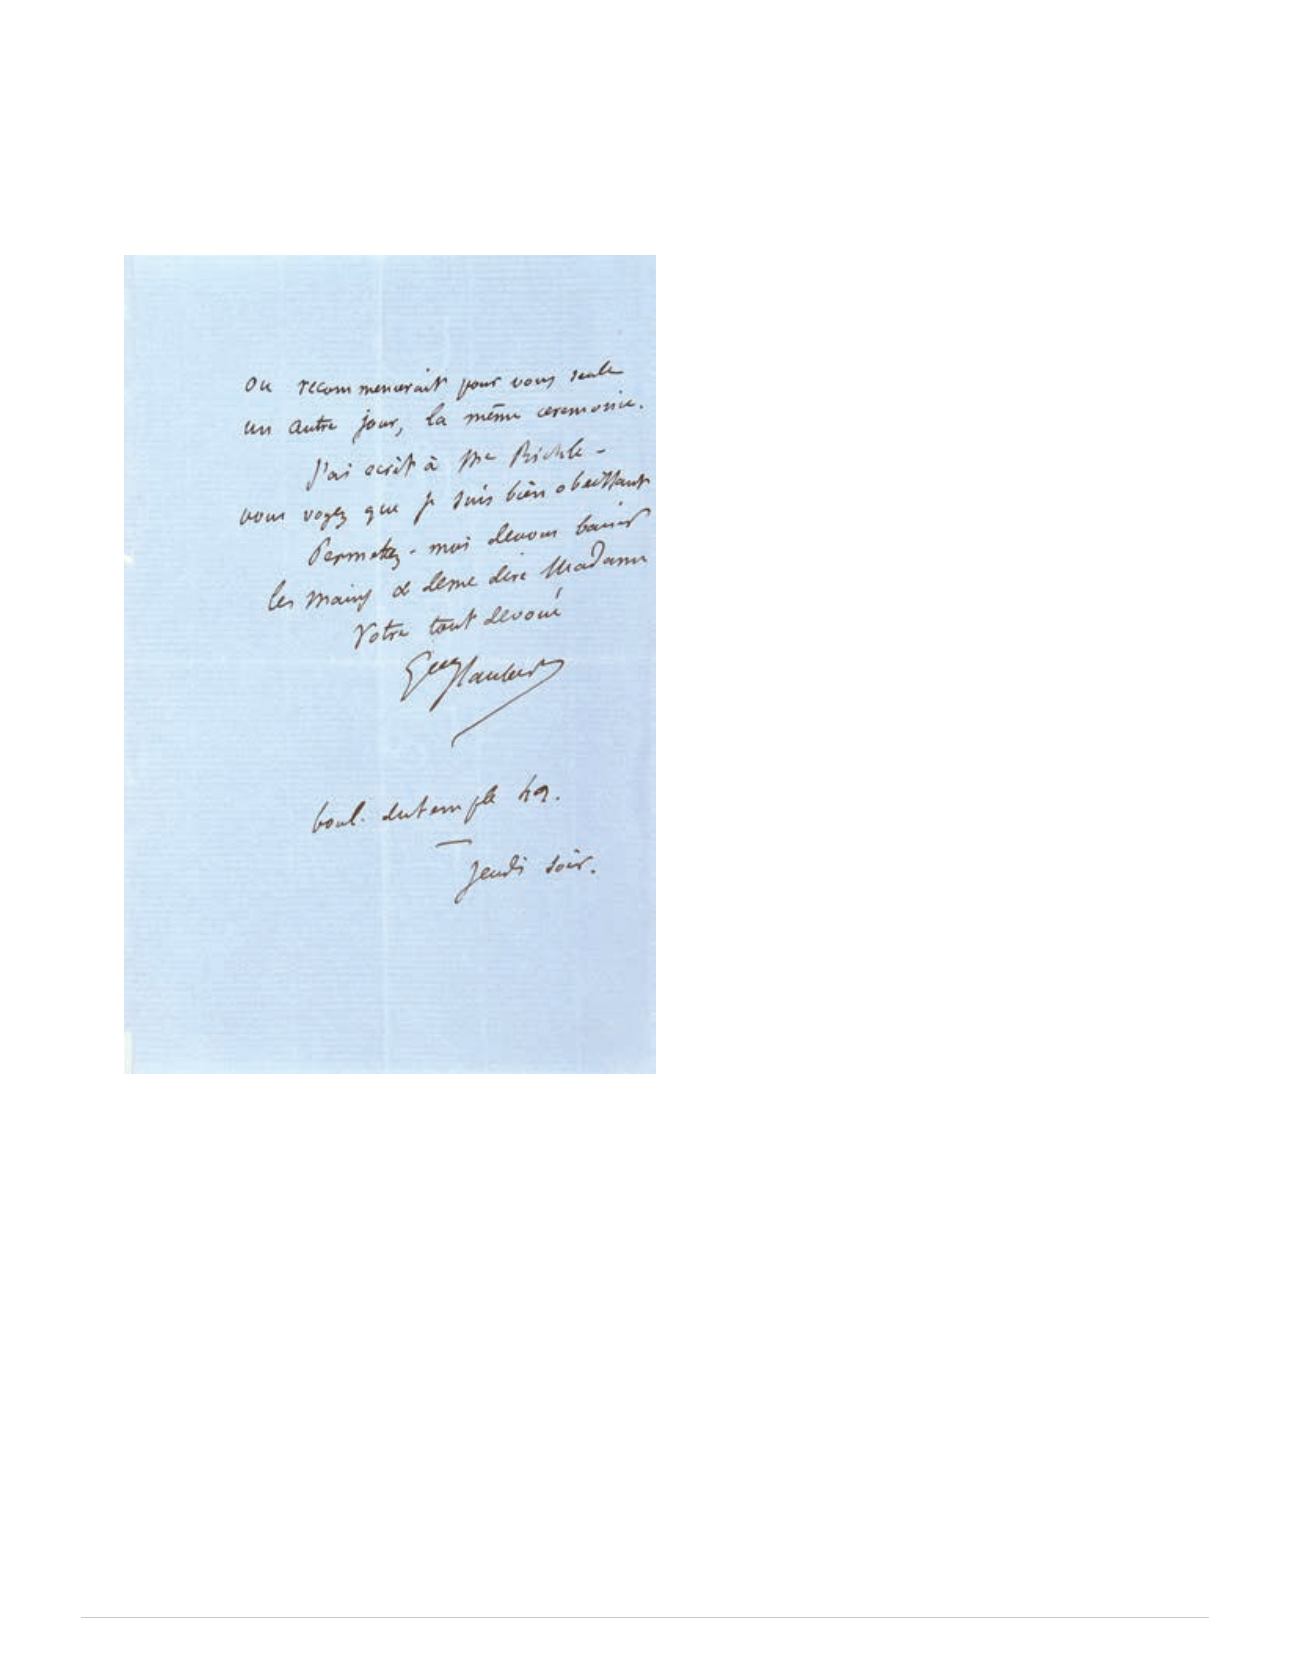 on recommencerait pour vous seule
un autre jour, la même ceremonie.
J'ai ecrit à Me -
vous voyez que je suis bien obeissant
Permetez-moi devous baiser
les mains & deme dire Madame
Votre tout devoué
Gve Flaubert
boul. dutemple 42.
Jeudi soir.